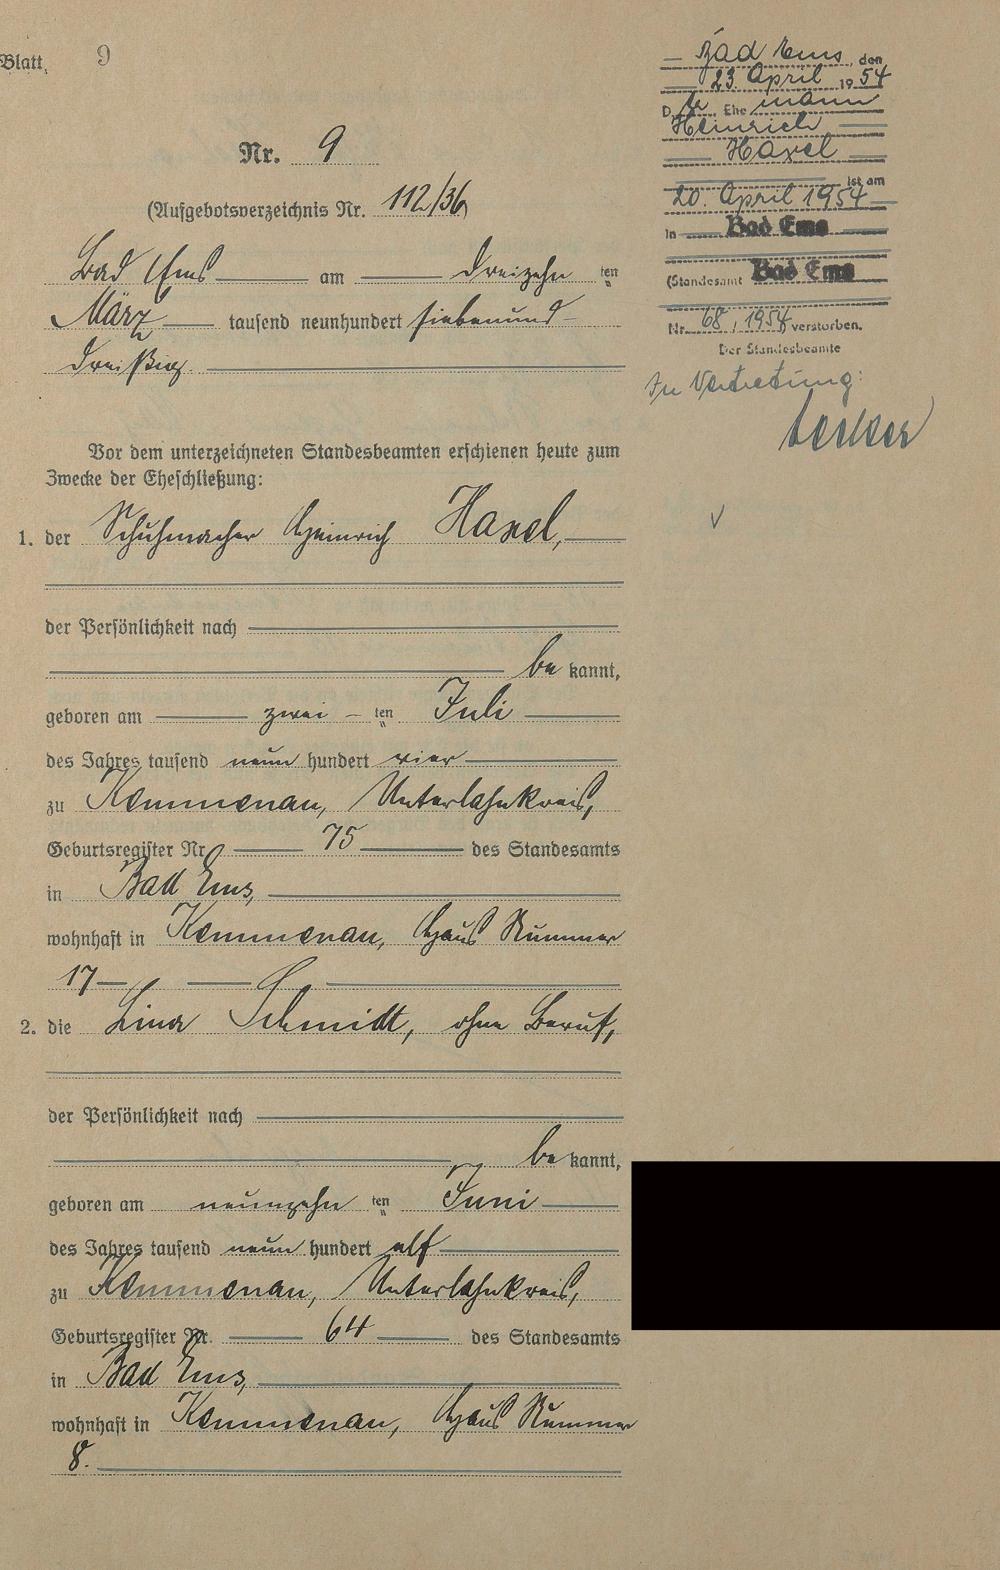 Blatt 9
Nr. 9
(Aufgebotsverzeichnis Nr. 112/36)
Bad Ems am dreizehn ten
März tausend neunhundert siebenund-
dreißig.
Vor dem unterzeichneten Standesbeamten erschienen heute zum
Zwecke der Eheschließung:
1. der Schuhmacher Heinrich Haxel,
der Persönlichkeit nach
be kannt,
geboren am zwei - ten Juli
des Jahres tausend neun hundert vier
zu Kemmenau, Unterlahnkreis,
Geburtsregister Nr. 75 des Standesamts
in Bad Ems,
wohnhaft in Kemmenau, Haus Nummer
17
2. die Lina Schmidt, ohne Beruf,
der Persönlichkeit nach
be kannt,
geboren am neunzehn ten Juni
des Jahres tausend neun hundert elf
zu Kemmenau, Unterlahnkreis,
Geburtsregister Nr. 64 des Standesamts
in Bad Ems,
wohnhaft in Kemmenau, Haus Nummer
8.
Bad Ems, den
23. April 1954
D er Ehe mann
Heinrich
Haxel
ist am
20. April 1954
in Bad Ems
(Standesamt Bad Ems
Nr. 68, 1954 verstorben.
Der Standesbeamte
In Vertretung: